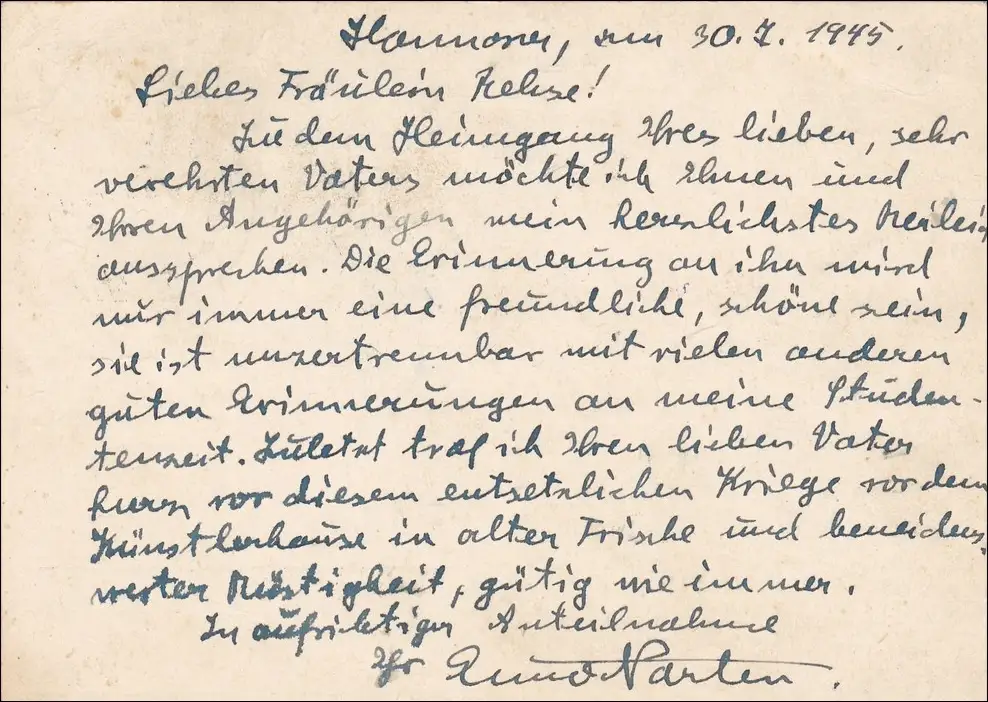 Hannover, am 30.7.1945.
Liebes Fräulein Rehse!
Zu dem Heimgang Ihres lieben, sehr
verehrten Vaters möchte ich Ihnen und
Ihren Angehörigen mein herzlichstes Beileid
aussprechen. Die Erinnerung an ihn wird
nur immer eine freundliche, schöne sein,
sie ist unzertrennbar mit vielen anderen
guten Erinnerungen an meine Studen-
tenzeit. Zuletzt traf ich Ihren lieben Vater
kurz vor diesem entsetzlichen Kriege vor dem
Künstlerhause in alter Frische und beneidens-
werter Rüstigkeit, gütig wie immer.
In aufrichtiger Anteilnahme
Ihr Narten.